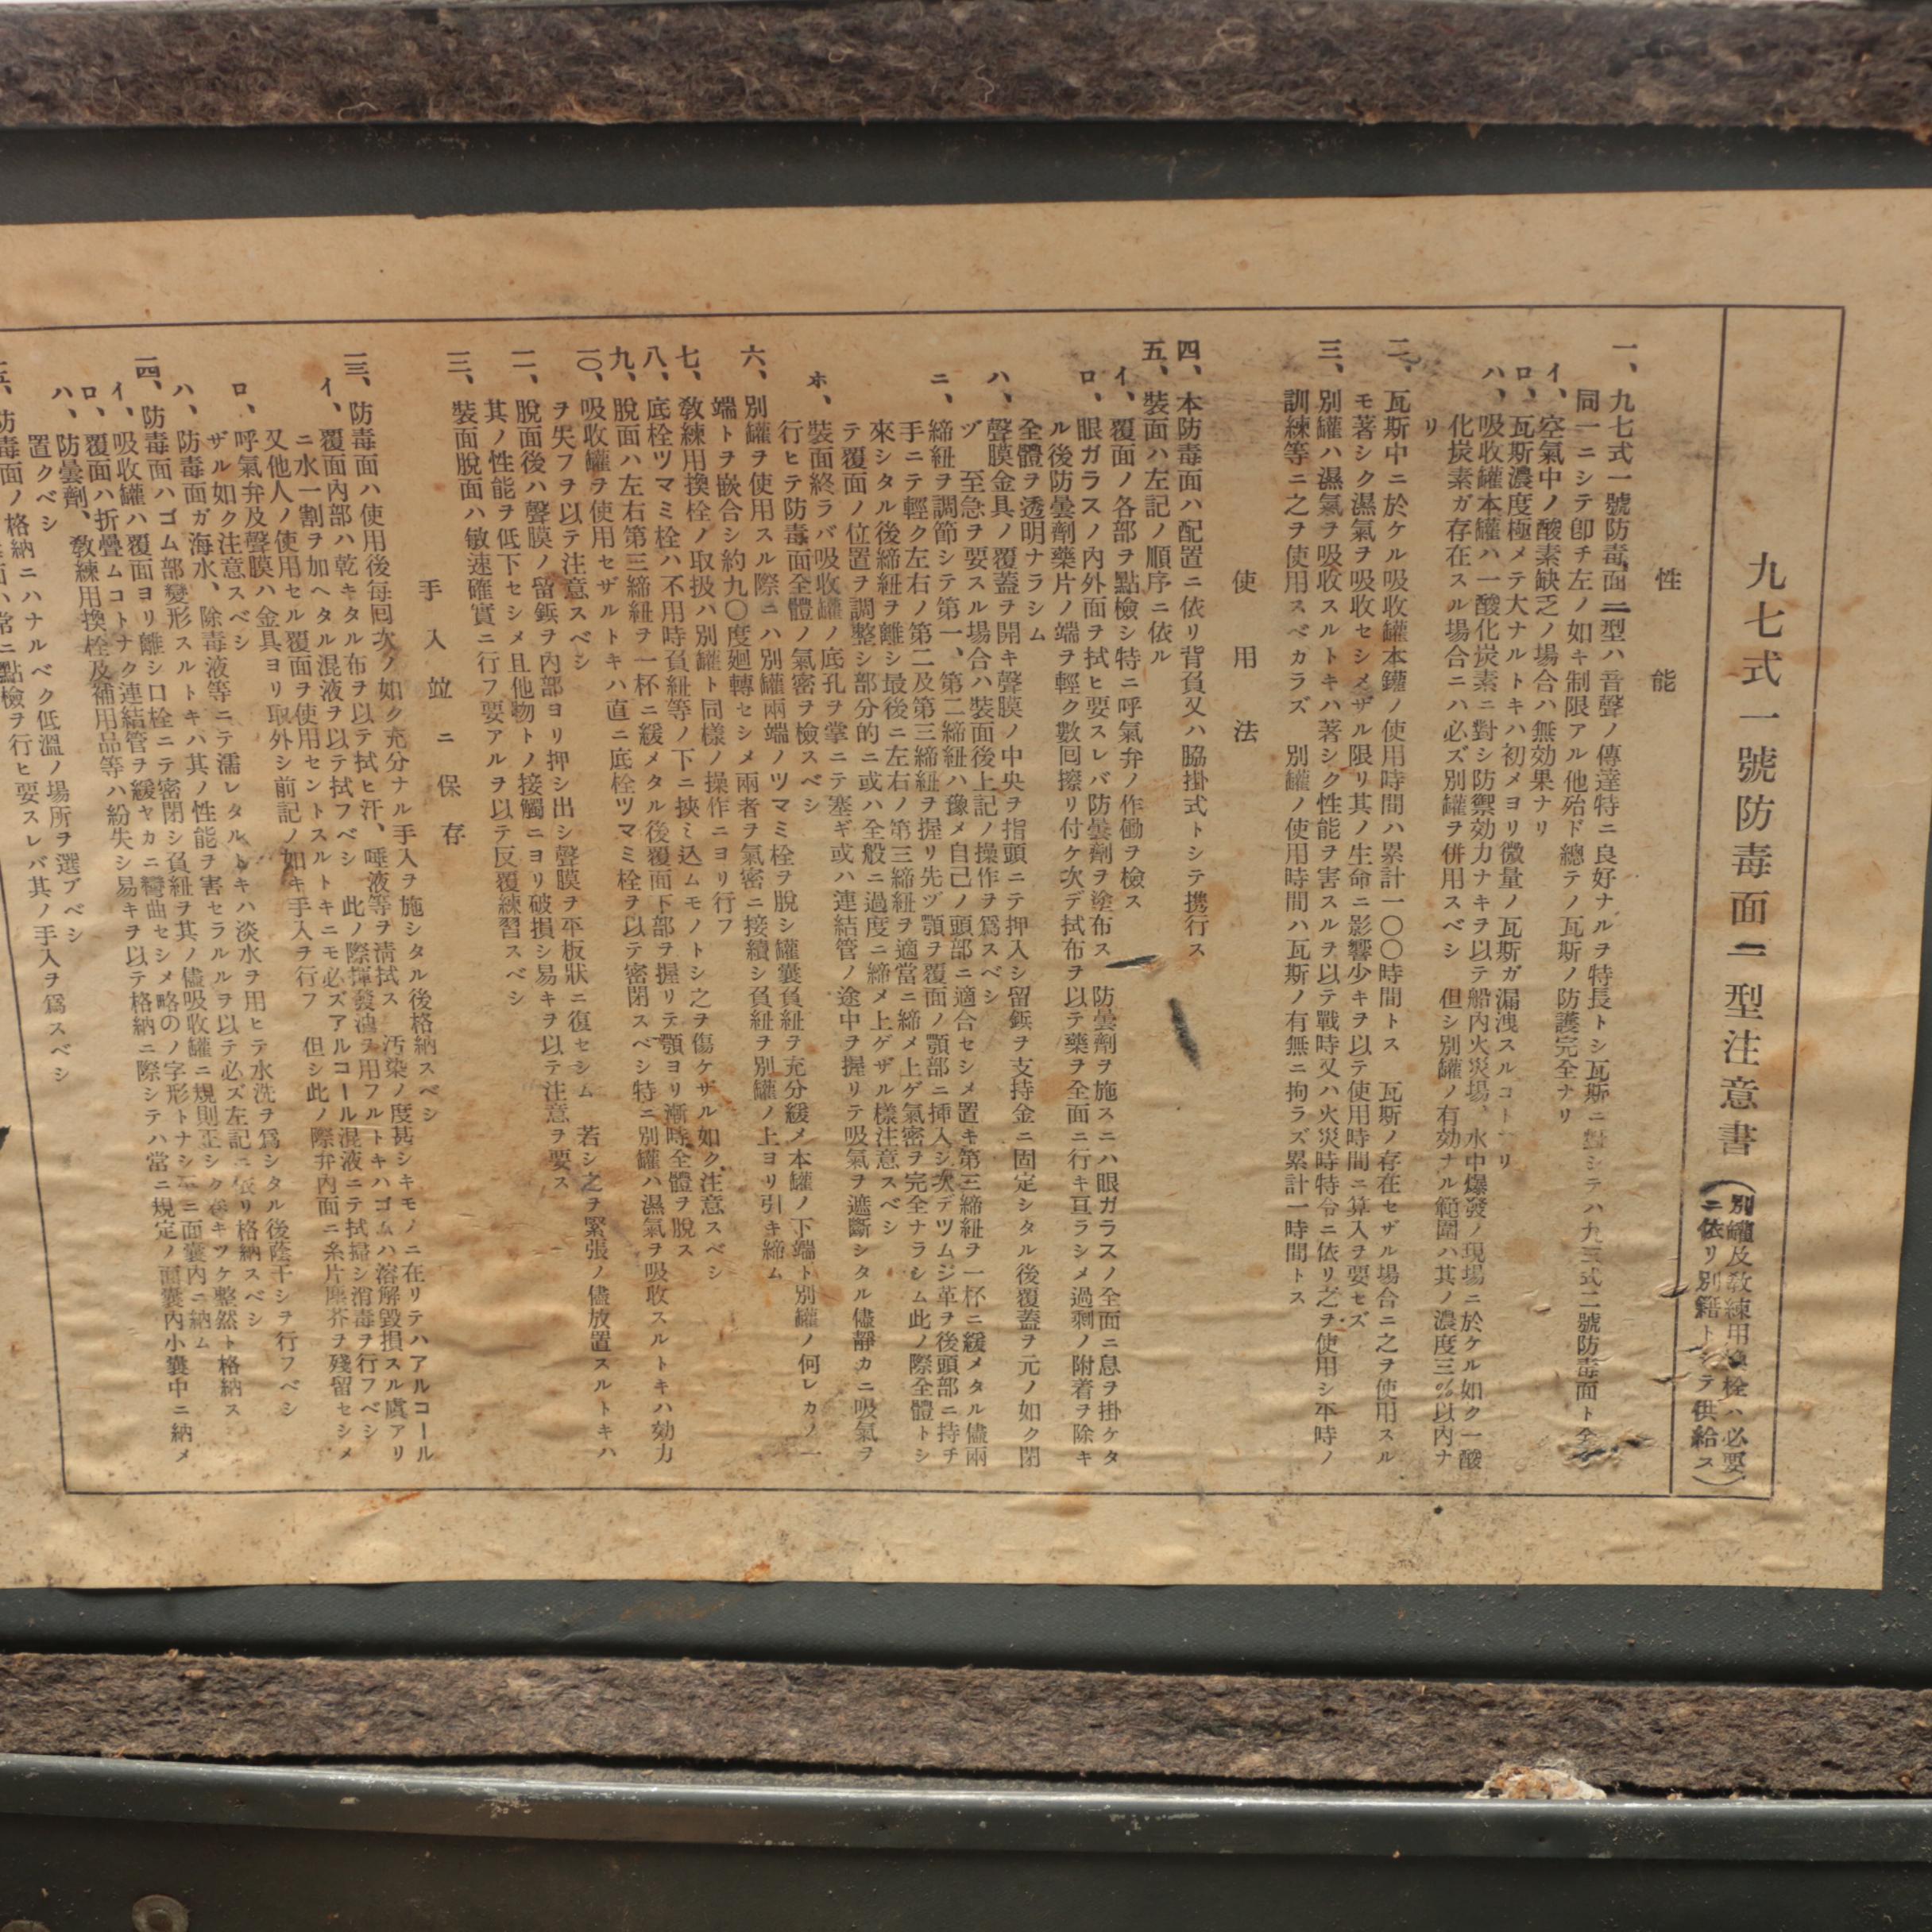 九七式一號防毒面二型注意書
(別罐及教練用換栓ハ必要
ニ依リ別籍トシテ供給ス)
性能
一、九七式一號防毒面二型ハ音聲ノ傳達特ニ良好ナルヲ特長トシ瓦斯ニ對シテハ九三式二號防毒面ト全ク
同一ニシテ卽チ左ノ如キ制限アル他殆ド總テノ瓦斯ノ防護完全ナリ
イ、空氣中ノ酸素缺乏ノ場合ハ無効果ナリ
ロ、瓦斯濃度極メテ大ナルトキハ初メヨリ微量ノ瓦斯ガ漏洩スルコト リ
ハ、吸收罐本罐ハ一酸化炭素ニ對シ防禦効力ナキヲ以テ船內火災場、水中爆發ノ現場ニ於ケル如ク一酸
化炭素ガ存在スル場合ニハ必ズ別罐ヲ併用スベシ 但シ別罐ノ有効ナル範圍ハ其ノ濃度三%以內ナ
リ
二、瓦斯中ニ於ケル吸收罐本罐ノ使用時間ハ累計一〇〇時間トス 瓦斯ノ存在セザル場合ニ之ヲ使用スル
モ著シク濕氣ヲ吸收セシメザル限リ其ノ生命ニ影響少キヲ以テ使用時間ニ算入ヲ要セズ
三、別罐ハ濕氣ヲ吸收スルトキハ著シク性能ヲ害スルヲ以テ戰時又ハ火災時特令ニ依リ之ヲ使用シ平時ノ
訓練等ニ之ヲ使用スベカラズ 別罐ノ使用時間ハ瓦斯ノ有無ニ拘ラズ累計一時間トス
使用法
四、本防毒面ハ配置ニ依リ背負又ハ脇掛式トシテ携行ス
五、裝面ハ左記ノ順序ニ依ル
イ、覆面ノ各部ヲ點檢シ特ニ呼氣弁ノ作働ヲ檢ス
ロ、眼ガラスノ內外面ヲ拭ヒ要スレバ防曇劑ヲ塗布ス 防曇劑ヲ施スニハ眼ガラスノ全面ニ息ヲ掛ケタ
ル後防曇劑藥片ノ端ヲ輕ク數囘擦リ付ケ次デ拭布ヲ以テ藥ヲ全面ニ行キ亘ラシメ過剩ノ附着ヲ除キ
全體ヲ透明ナラシム
ハ、聲膜金具ノ覆蓋ヲ開キ聲膜ノ中央ヲ指頭ニテ押入シ留鋲ヲ支持金ニ固定シタル後覆蓋ヲ元ノ如ク閉
ヅ 至急ヲ要スル場合ハ裝面後上記ノ操作ヲ爲スベシ
ニ、締紐ヲ調節シテ第一、第二締紐ハ豫メ自己ノ頭部ニ適合セシメ置キ第三締紐ヲ一杯ニ緩メタル儘兩
手ニテ輕ク左右ノ第二及第三締紐ヲ握リ先ヅ顎ヲ覆面ノ顎部ニ挿入シ次デツムジ革ヲ後頭部ニ持チ
來シタル後締紐ヲ離シ最後ニ左右ノ第三締紐ヲ適當ニ締メ上ゲ氣密ヲ完全ナラシム此ノ際全體トシ
テ覆面ノ位置ヲ調整シ部分的ニ或ハ全般ニ過度ニ締メ上ゲザル樣注意スベシ
ホ、裝面終ラバ吸收罐ノ底孔ヲ掌ニテ塞ギ或ハ連結管ノ途中ヲ握リテ吸氣ヲ遮斷シタル儘靜カニ吸氣ヲ
行ヒテ防毒面全體ノ氣密ヲ檢スベシ
六、別罐ヲ使用スル際ニハ別罐兩端ノツマミ栓ヲ脫シ罐囊負紐ヲ充分緩メ本罐ノ下端ト別罐ノ何レカノ一
端トヲ嵌合シ約九〇度廻轉セシメ兩者ヲ氣密ニ接續シ負紐ヲ別罐ノ上ヨリ引キ締ム
七、教練用換栓ノ取扱ハ別罐ト同樣ノ操作ニヨリ行フ
八、底栓ツマミ栓ハ不用時負紐等ノ下ニ挾ミ込ムモノトシ之ヲ傷ケザル如ク注意スベシ
九、脫面ハ左右第三締紐ヲ一杯ニ緩メタル後覆面下部ヲ握リテ顎ヨリ漸時全體ヲ脫ス
一〇、吸收罐ヲ使用セザルトキハ直ニ底栓ツマミ栓ヲ以テ密閉スベシ特ニ別罐ハ濕氣ヲ吸收スルトキハ効力
ヲ失フヲ以テ注意スベシ
一一、脫面後ハ聲膜ノ留鋲ヲ內部ヨリ押シ出シ聲膜ヲ平板狀ニ復セシム 若シ之ヲ緊張ノ儘放置スルトキハ
其ノ性能ヲ低下セシメ且他物トノ接觸ニヨリ破損シ易キヲ以テ注意ヲ要ス
一二、裝面脫面ハ敏速確實ニ行フ要アルヲ以テ反覆練習スベシ
手入竝ニ保存
一三、防毒面ハ使用後每囘次ノ如ク充分ナル手入ヲ施シタル後格納スベシ
イ、覆面內部ハ乾キタル布ヲ以テ拭ヒ汗、唾液等ヲ淸拭ス 汚染ノ度甚シキモノニ在リテハアルコール
ニ水一割ヲ加ヘタル混液ヲ以テ拭フベシ 此ノ際揮發油ヲ用フルトキハゴムハ溶解毀損スル虞アリ
又他人ノ使用セル覆面ヲ使用セントスルトキニモ必ズアルコール混液ニテ拭掃シ消毒ヲ行フベシ
ロ、呼氣弁及聲膜ハ金具ヨリ取外シ前記ノ如キ手入ヲ行フ 但シ此ノ際弁內面ニ糸片塵芥ヲ殘留セシメ
ザル如ク注意スベシ
ハ、防毒面ガ海水、除毒液等ニテ濡レタルトキハ淡水ヲ用ヒテ水洗ヲ爲シタル後蔭干シヲ行フベシ
一四、防毒面ハゴム部變形スルトキハ其ノ性能ヲ害セラルルヲ以テ必ズ左記ニ依リ格納スベシ
イ、吸收罐ハ覆面ヨリ離シ口栓ニテ密閉シ負紐ヲ其ノ儘吸收罐ニ規則正シク卷キツケ整然ト格納ス
ロ、覆面ハ折疊ムコトナク連結管ヲ緩ヤカニ彎曲セシメ略のノ字形トナシ ニ面囊內ニ納ム
ハ、防曇劑、教練用換栓及補用品等ハ紛失シ易キヲ以テ格納ニ際シテハ當ニ規定ノ面囊內小囊中ニ納メ
置クベシ
防毒面ノ格納ニハナルベク低溫ノ場所ヲ選ブベシ
面ハ常ニ點檢ヲ行ヒ要スレバ其ノ手入ヲ爲スベシ